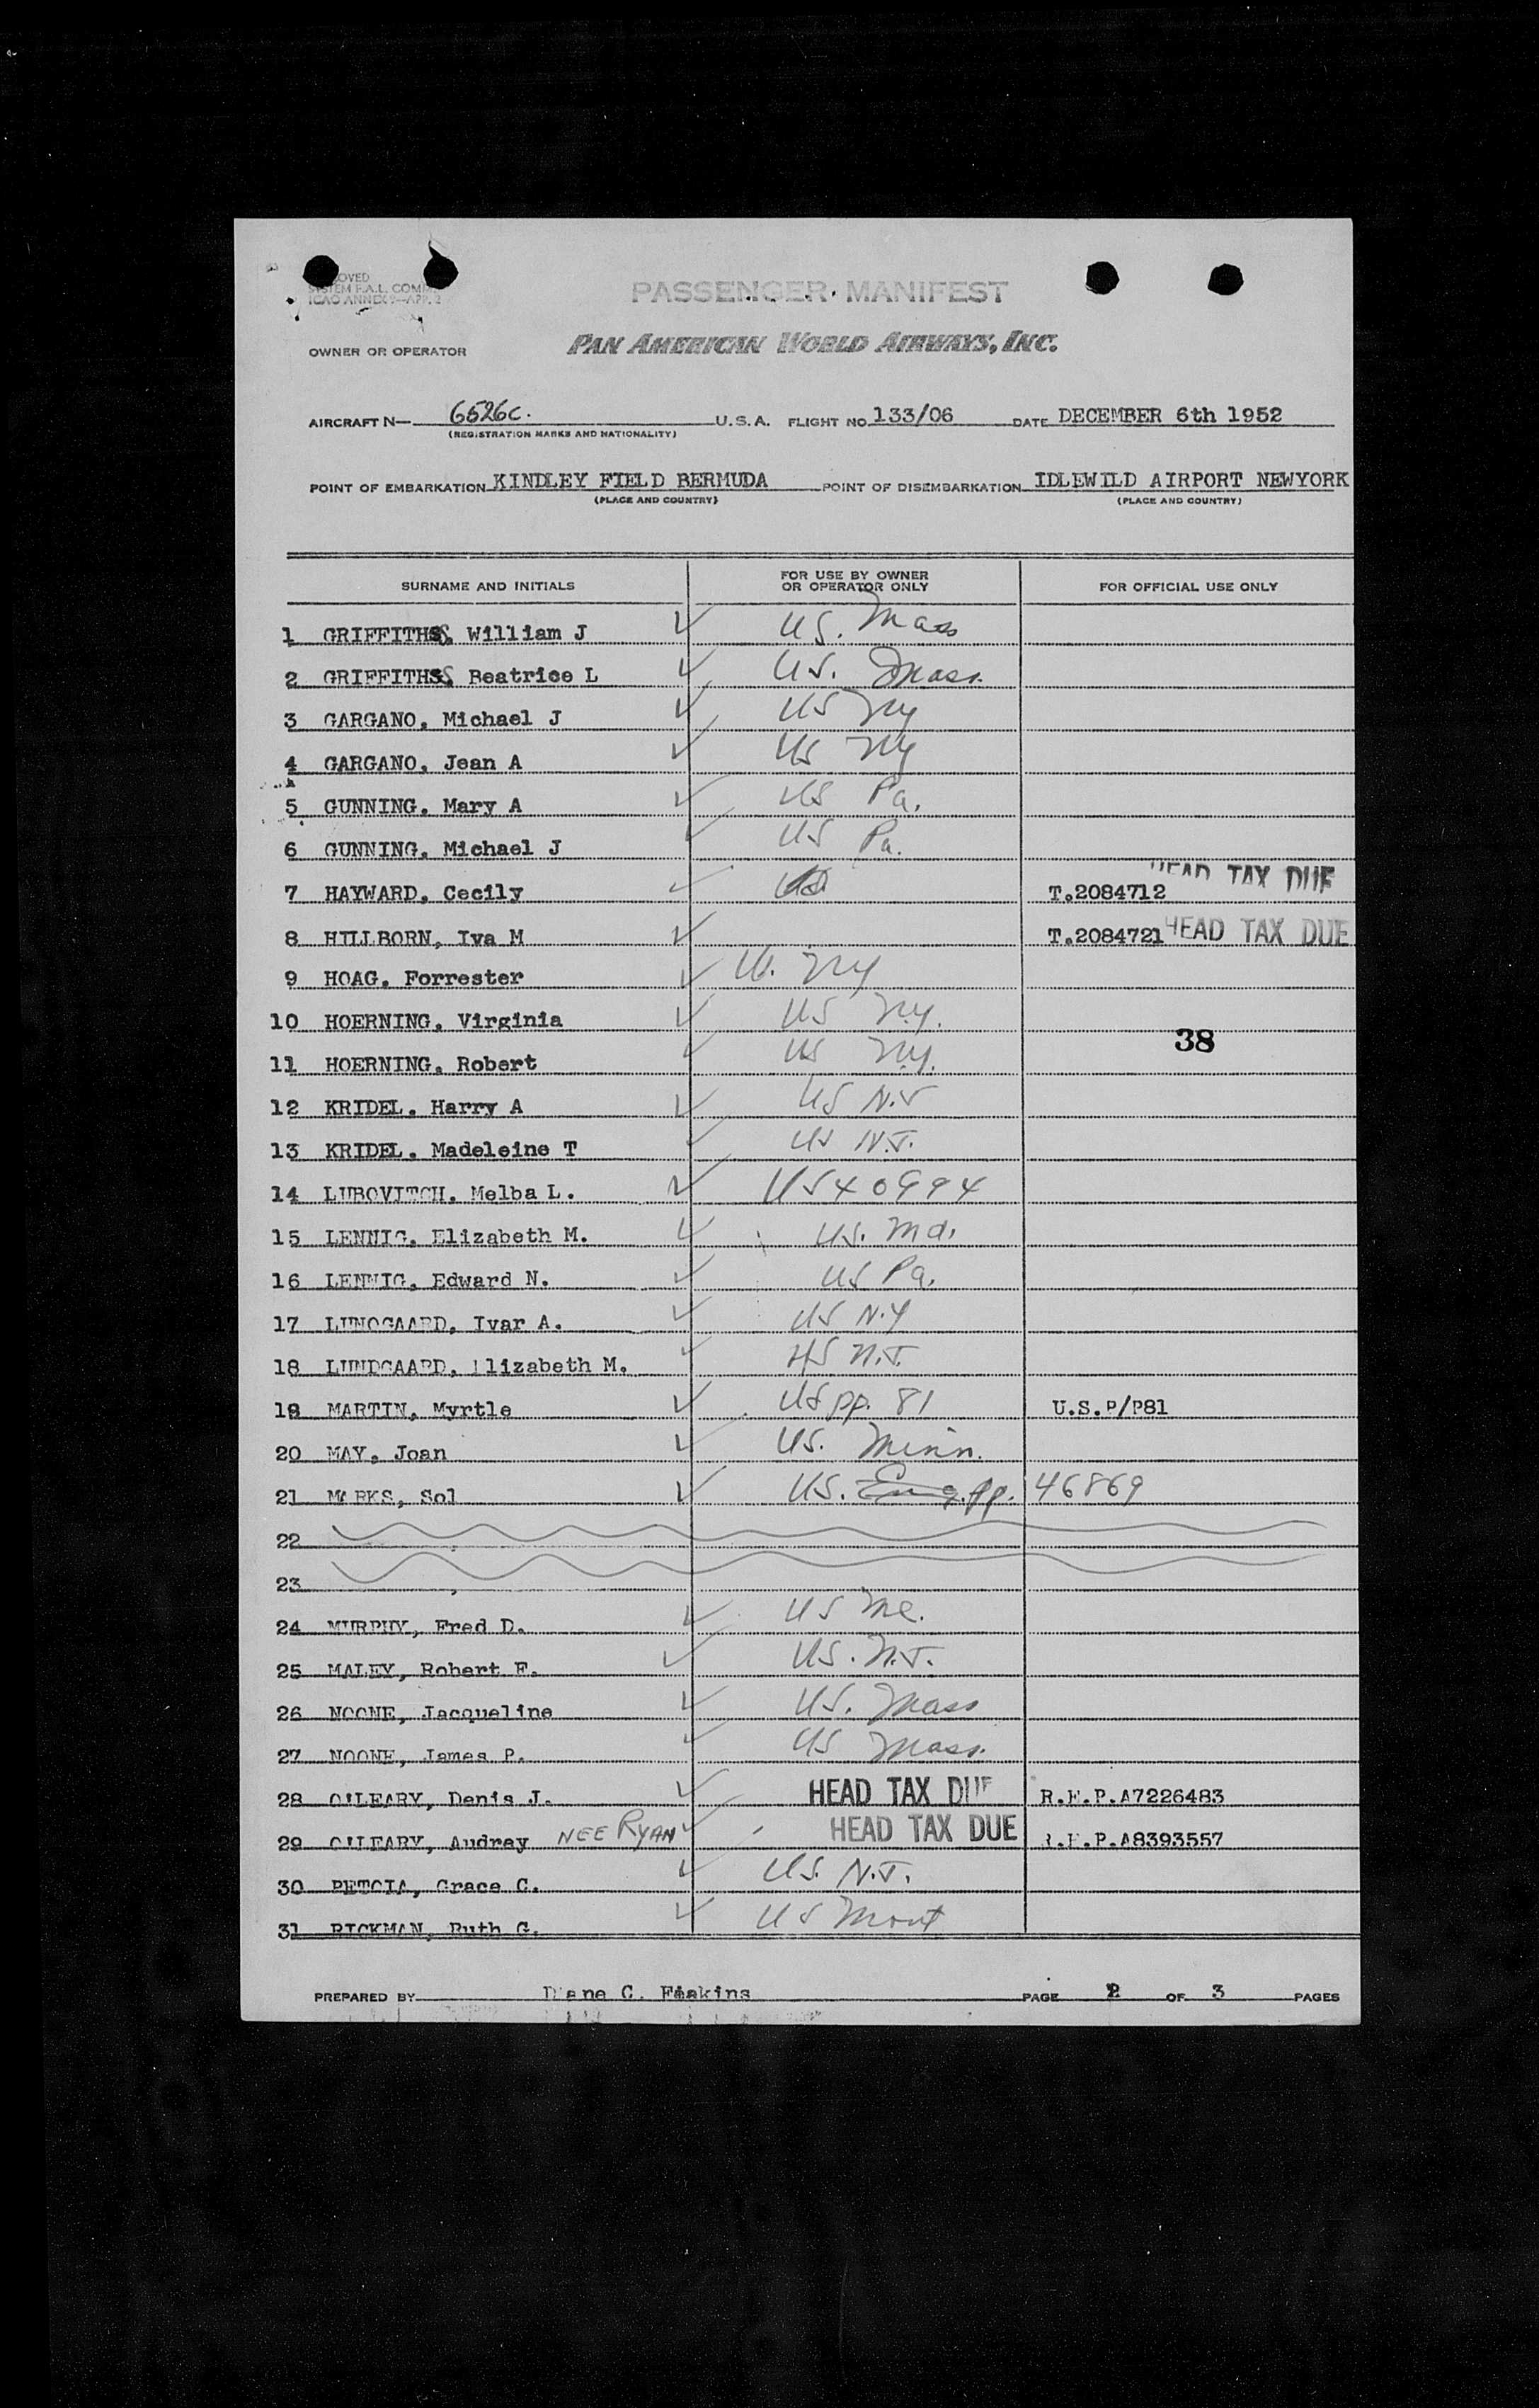 OVED
SYSTEM F.A.L. COMM
ICAO ANNEX 9—APP. 2
PASSENGER MANIFEST
OWNER OR OPERATOR PAN AMERICAN WORLD AIRWAYS, INC.
AIRCRAFT N— 6526C. U.S.A. FLIGHT NO 133/06 DATE DECEMBER 6th 1952
(REGISTRATION MARKS AND NATIONALITY)
POINT OF EMBARKATION KINDLEY FIELD BERMUDA POINT OF DISEMBARKATION IDLEWILD AIRPORT NEWYORK
(PLACE AND COUNTRY) (PLACE AND COUNTRY)
SURNAME AND INITIALS FOR USE BY OWNER OR OPERATOR ONLY FOR OFFICIAL USE ONLY
1 GRIFFITHS, William J US. Mass
2 GRIFFITHS, Beatrice L US. Mass.
3 GARGANO, Michael J US NY
4 GARGANO, Jean A US NY
5 GUNNING, Mary A US Pa.
6 GUNNING, Michael J US Pa.
7 HAYWARD, Cecily US T.2084712 HEAD TAX DUE
8 HILLBORN, Iva M T.2084721 HEAD TAX DUE
9 HOAG, Forrester U. NY
10 HOERNING, Virginia US N.Y.
38
11 HOERNING, Robert US N.Y.
12 KRIDEL, Harry A US N.J
13 KRIDEL, Madeleine T US N.J.
14 LUBOVITCH, Melba L. US 40994
15 LENNIG, Elizabeth M. US. Md.
16 LENNIG, Edward N. US Pa.
17 LUNOGAARD, Ivar A. US N.Y
18 LUNDGAARD, Elizabeth M. US N.J.
19 MARTIN, Myrtle US pp. 81 U.S.P/P81
20 MAY, Joan US. Minn.
21 MARKS, Sol US. Eng. pp. 46869
22
23
24 MURPHY, Fred D. US Me.
25 MALEY, Robert F. US. N.J.
26 NOONE, Jacqueline US. Mass
27 NOONE, James P. US Mass.
28 O'LEARY, Denis J. HEAD TAX DUE R.E.P.A7226483
29 O'LEARY, Audrey NEE RYAN HEAD TAX DUE R.E.P.A8393557
30 PETOIA, Grace C. US. N.J.
31 RICKMAN, Ruth G. US Mont
PREPARED BY Diane C. Feakins PAGE 2 OF 3 PAGES